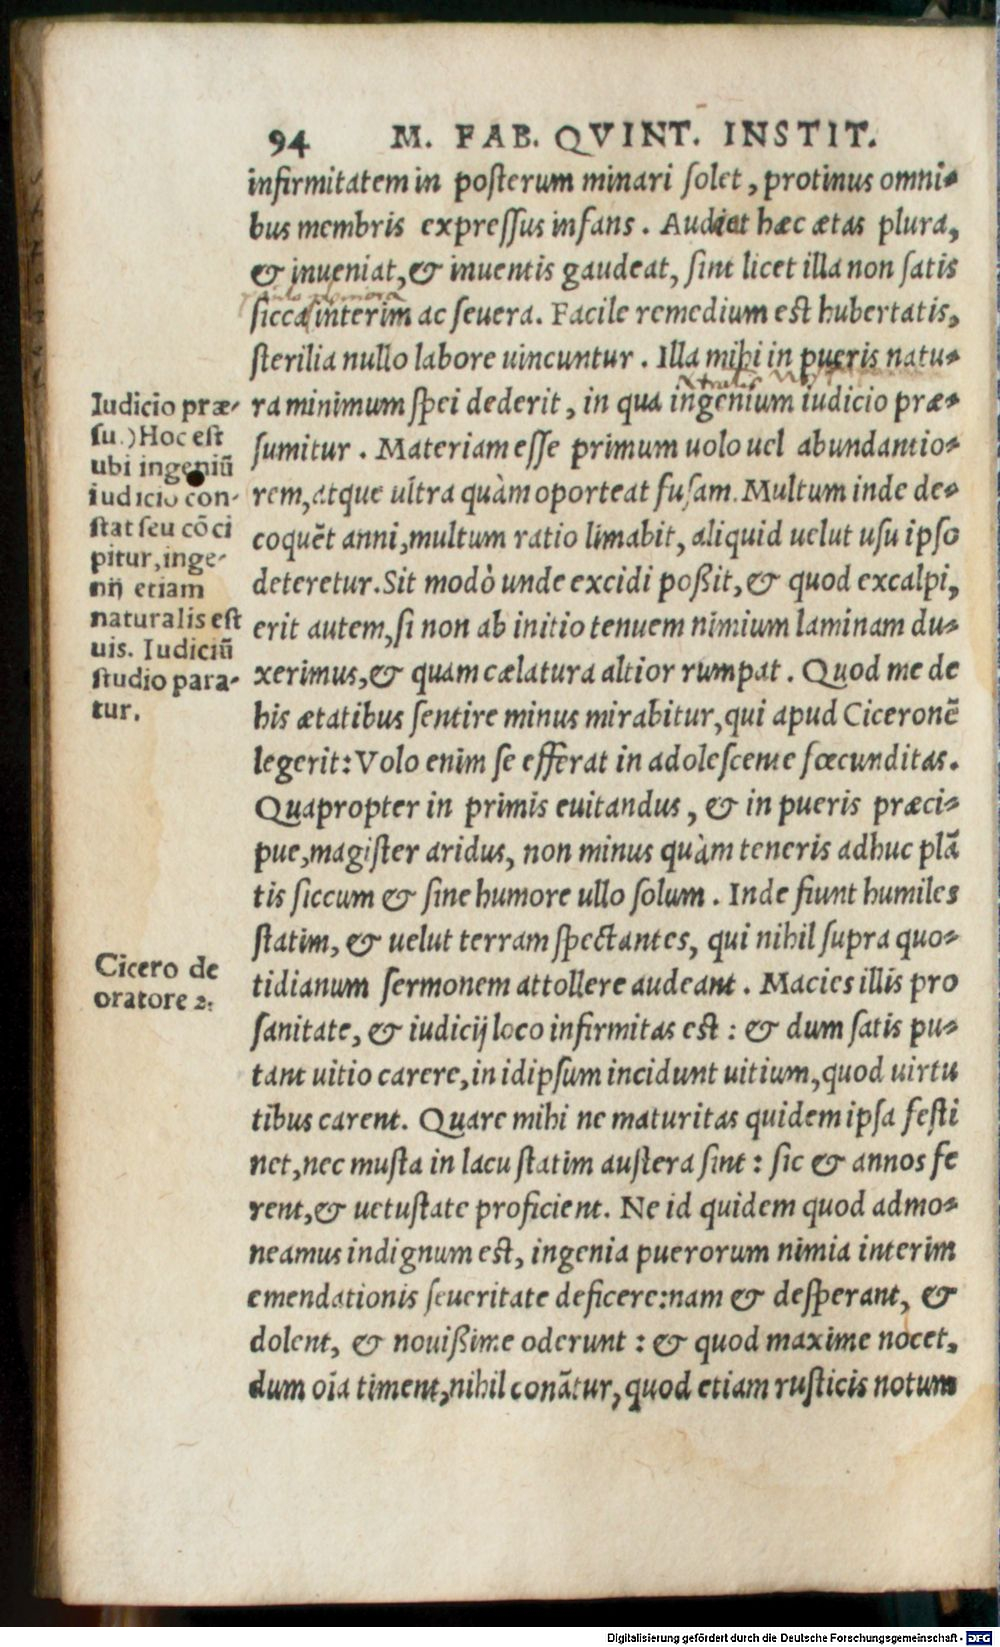 94 M. FAB. QVINT. INSTIT.
infirmitatem in posterum minari solet, protinus omni-
bus membris expressus infans. Audeat hæc ætas plura,
& inueniat, & inuentis gaudeat, sint licet illa non satis
sicca interim ac seuera. Facile remedium est hubertatis,
sterilia nullo labore uincuntur. Illa mihi in pueris natu-
ra minimum spei dederit, in qua ingenium iudicio præ-
sumitur. Materiam esse primum uolo uel abundantio-
rem, atque ultra quàm oporteat fusam. Multum inde de-
coquẽt anni, multum ratio limabit, aliquid uelut usu ipso
deteretur. Sit modò unde excidi poßit, & quod excalpi,
erit autem, si non ab initio tenuem nimium laminam du-
xerimus, & quam cælatura altior rumpat. Quod me de
his ætatibus sentire minus mirabitur, qui apud Ciceronẽ
legerit: Volo enim se efferat in adolescente fœcunditas.
Quapropter in primis euitandus, & in pueris præci-
pue, magister aridus, non minus quàm teneris adhuc plã
tis siccum & sine humore ullo solum. Inde fiunt humiles
statim, & uelut terram spectantes, qui nihil supra quo-
tidianum sermonem attollere audeant. Macies illis pro
sanitate, & iudicij loco infirmitas est: & dum satis pu-
tant uitio carere, in id ipsum incidunt uitium, quod uirtu
tibus carent. Quare mihi ne maturitas quidem ipsa festi
net, nec musta in lacu statim austera sint: sic & annos fe
rent, & uetustate proficient. Ne id quidem quod admo-
neamus indignum est, ingenia puerorum nimia interim
emendationis seueritate deficere: nam & desperant, &
dolent, & nouißime oderunt: & quod maxime nocet,
dum oĩa timent, nihil conãtur, quod etiam rusticis notum
Iudicio præ-
su.) Hoc est
ubi ingeniũ
iudicio con-
stat seu cõci
pitur, inge-
nij etiam
naturalis est
uis. Iudiciũ
studio para-
tur.
Cicero de
oratore 2.
Digitalisierung gefördert durch die Deutsche Forschungsgemeinschaft - DFG